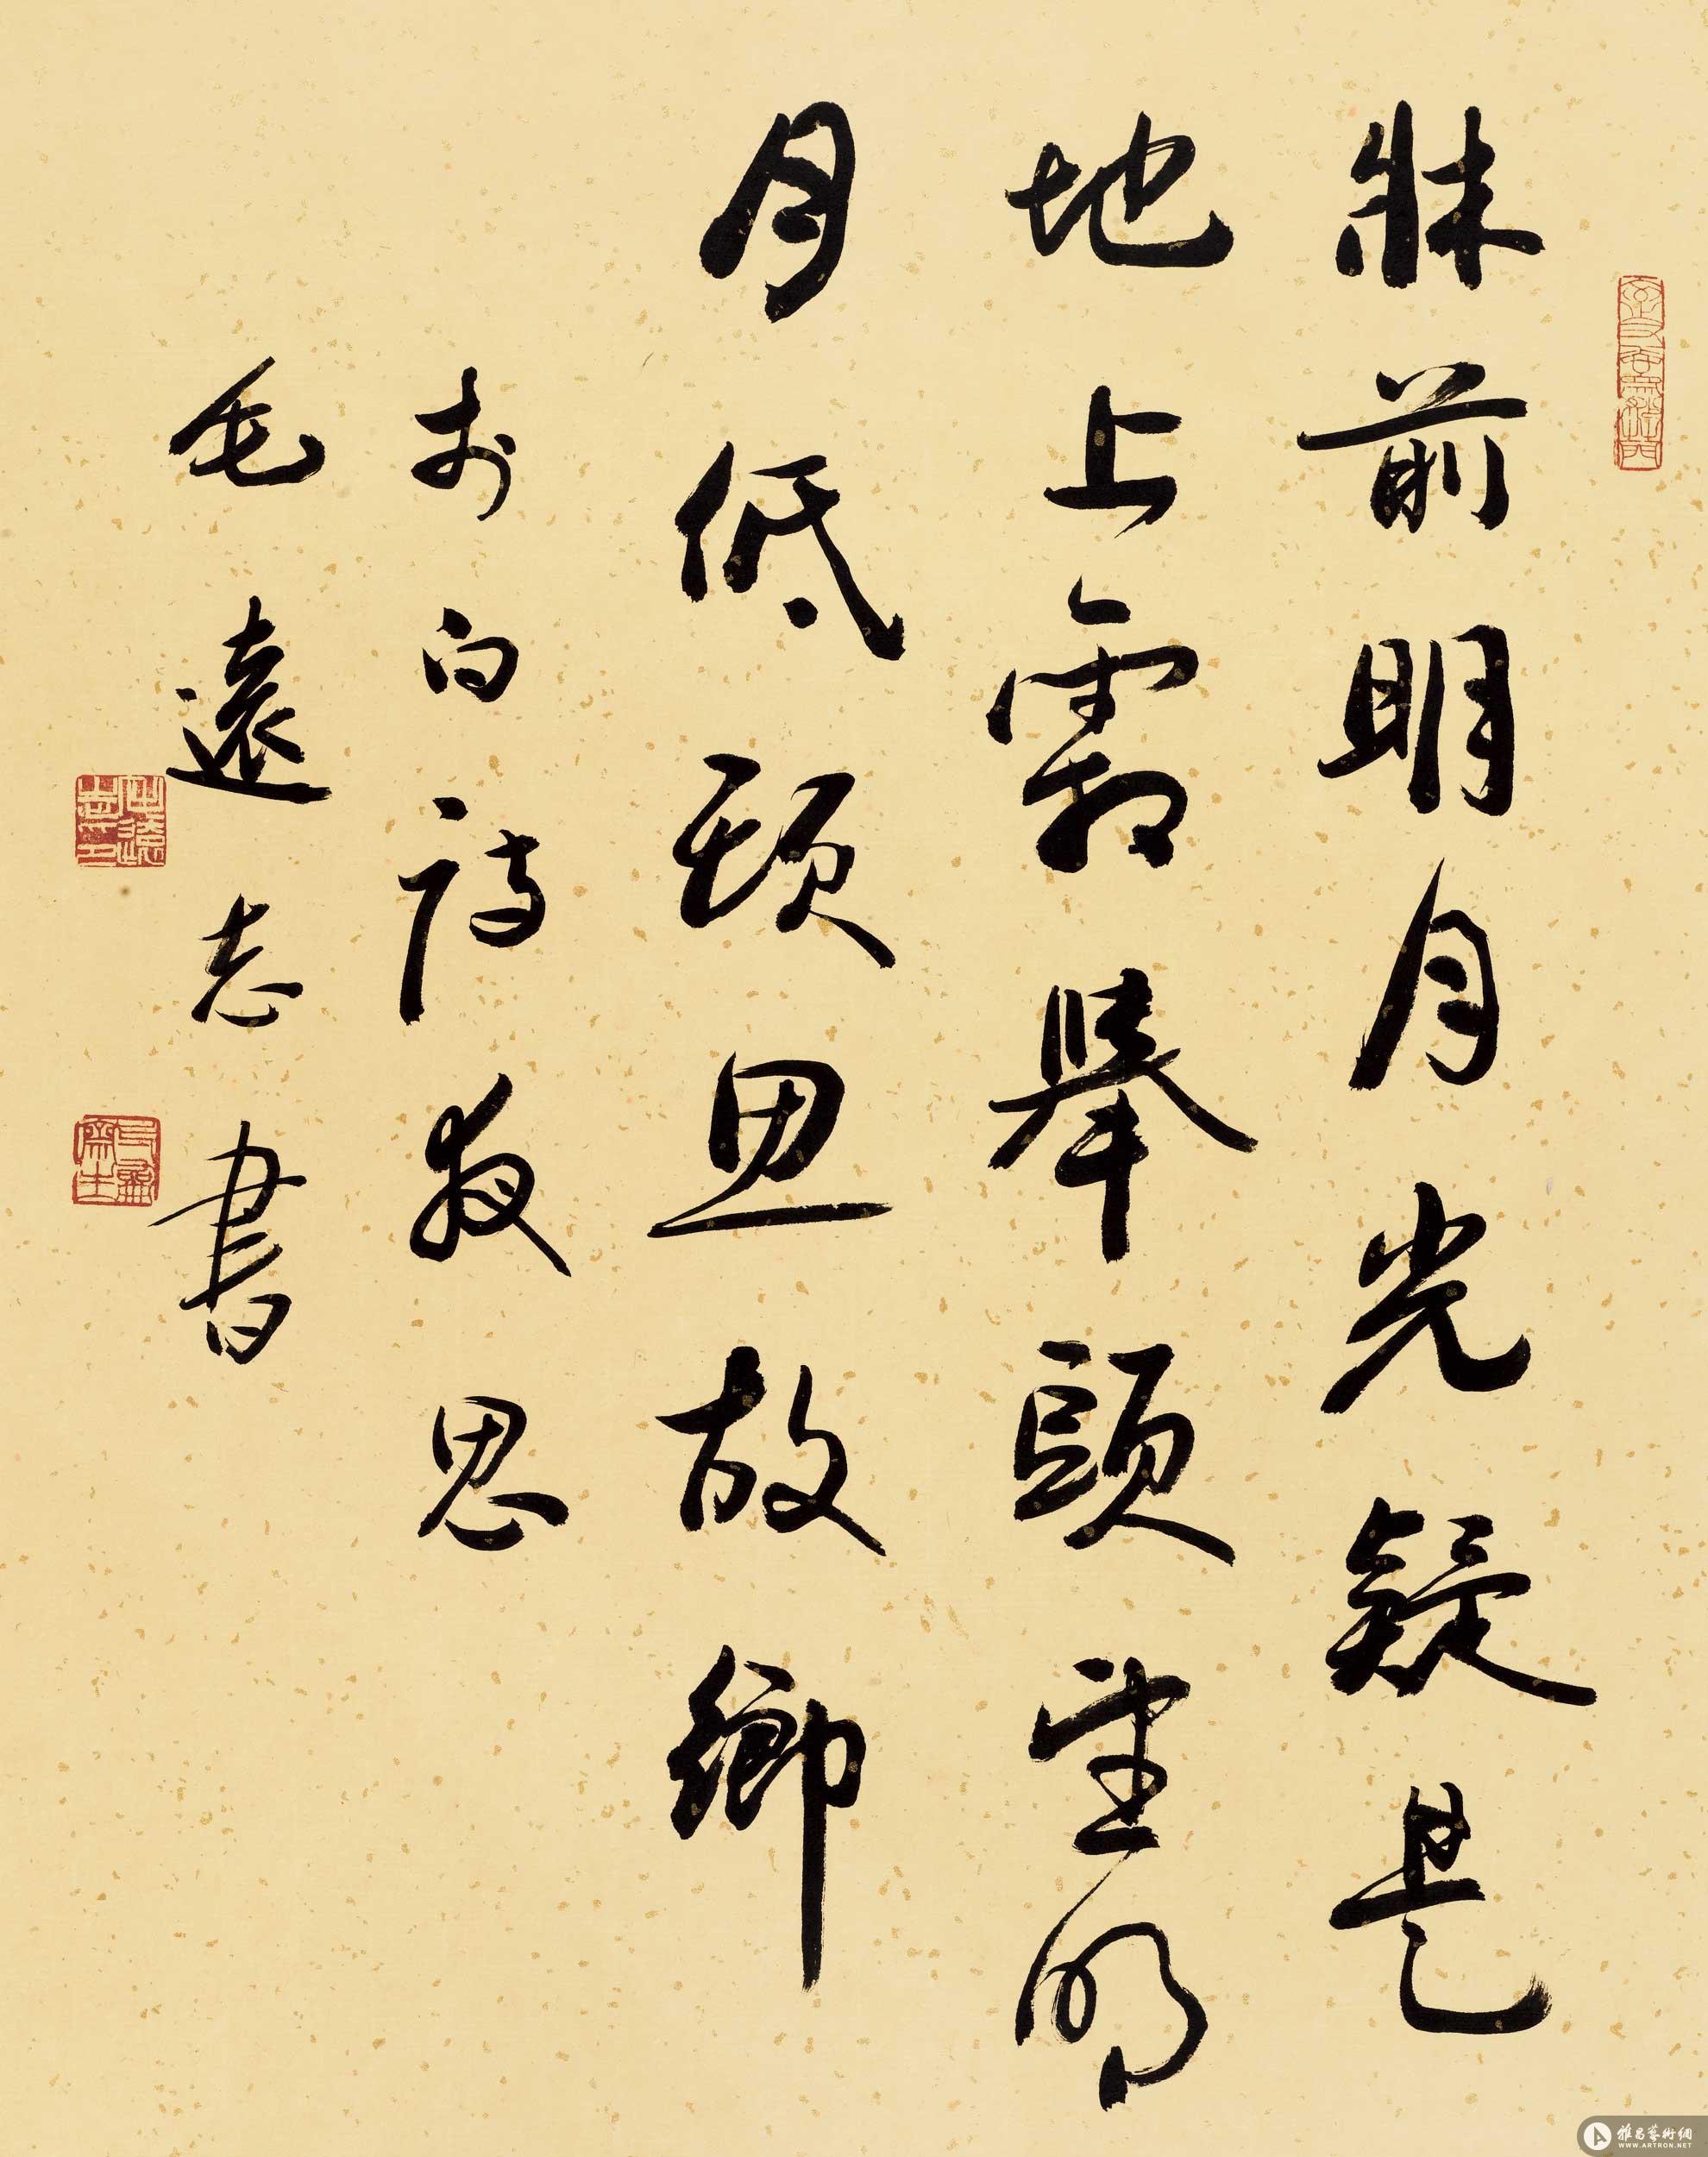 牀前明月光疑是
地上霜舉頭望明
月低頭思故鄉
李白詩夜思
毛遠志書
雅昌藝術網
WWW.ARTRON.NET